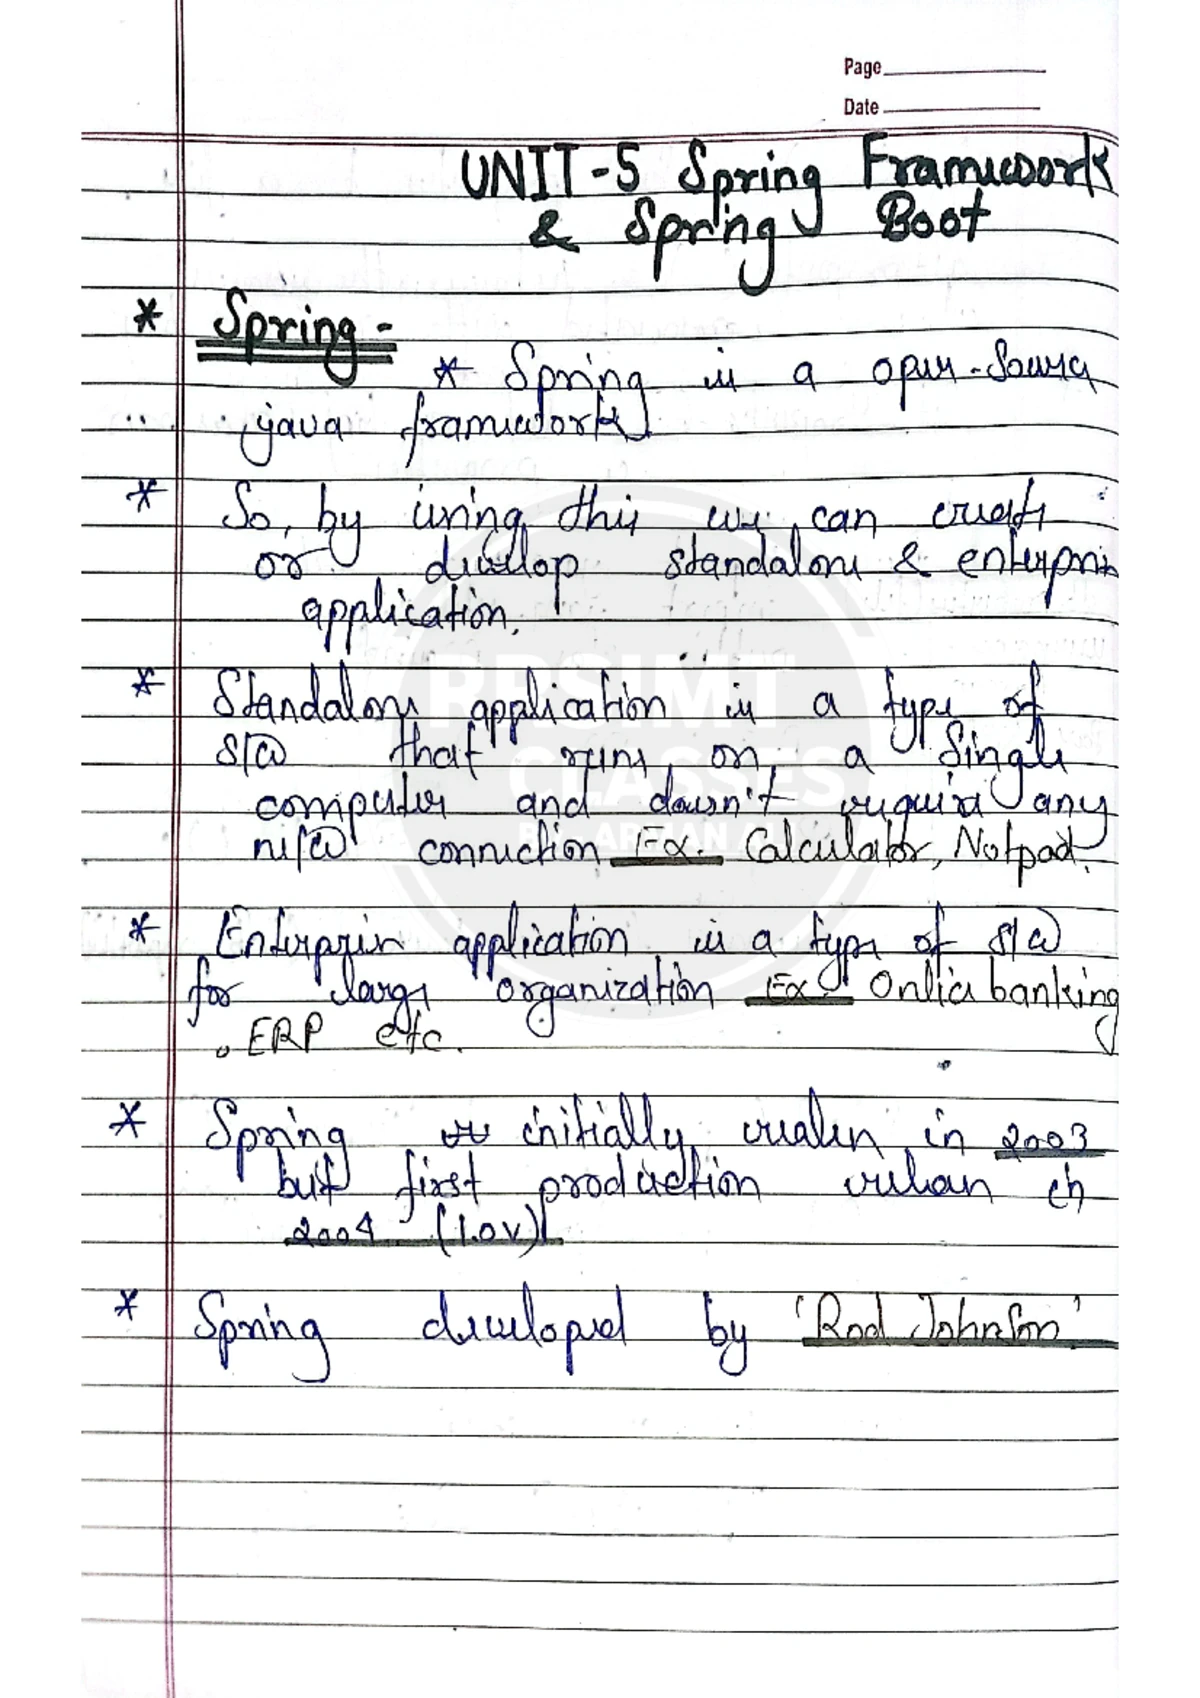 Page
Date
UNIT-5 Spring Framework
& Spring Boot
* Spring -
* Spring is a open-Source
java framework.
* So, by using this we can create
or develop standalone & enterprise
application.
* Standalone application is a type of
S/w that runs on a Single
computer and doesn't require any
n/w connection Ex. Calculator, Notpad.
* Enterprise application is a type of S/w
for large organization Ex. Online banking
, ERP etc.
* Spring initially realen in 2003
but first production release in
2004 (1.0v)
* Spring developed by 'Rod Johnson'
RRSIMT
CLASSES
BY- ARMAN ALI